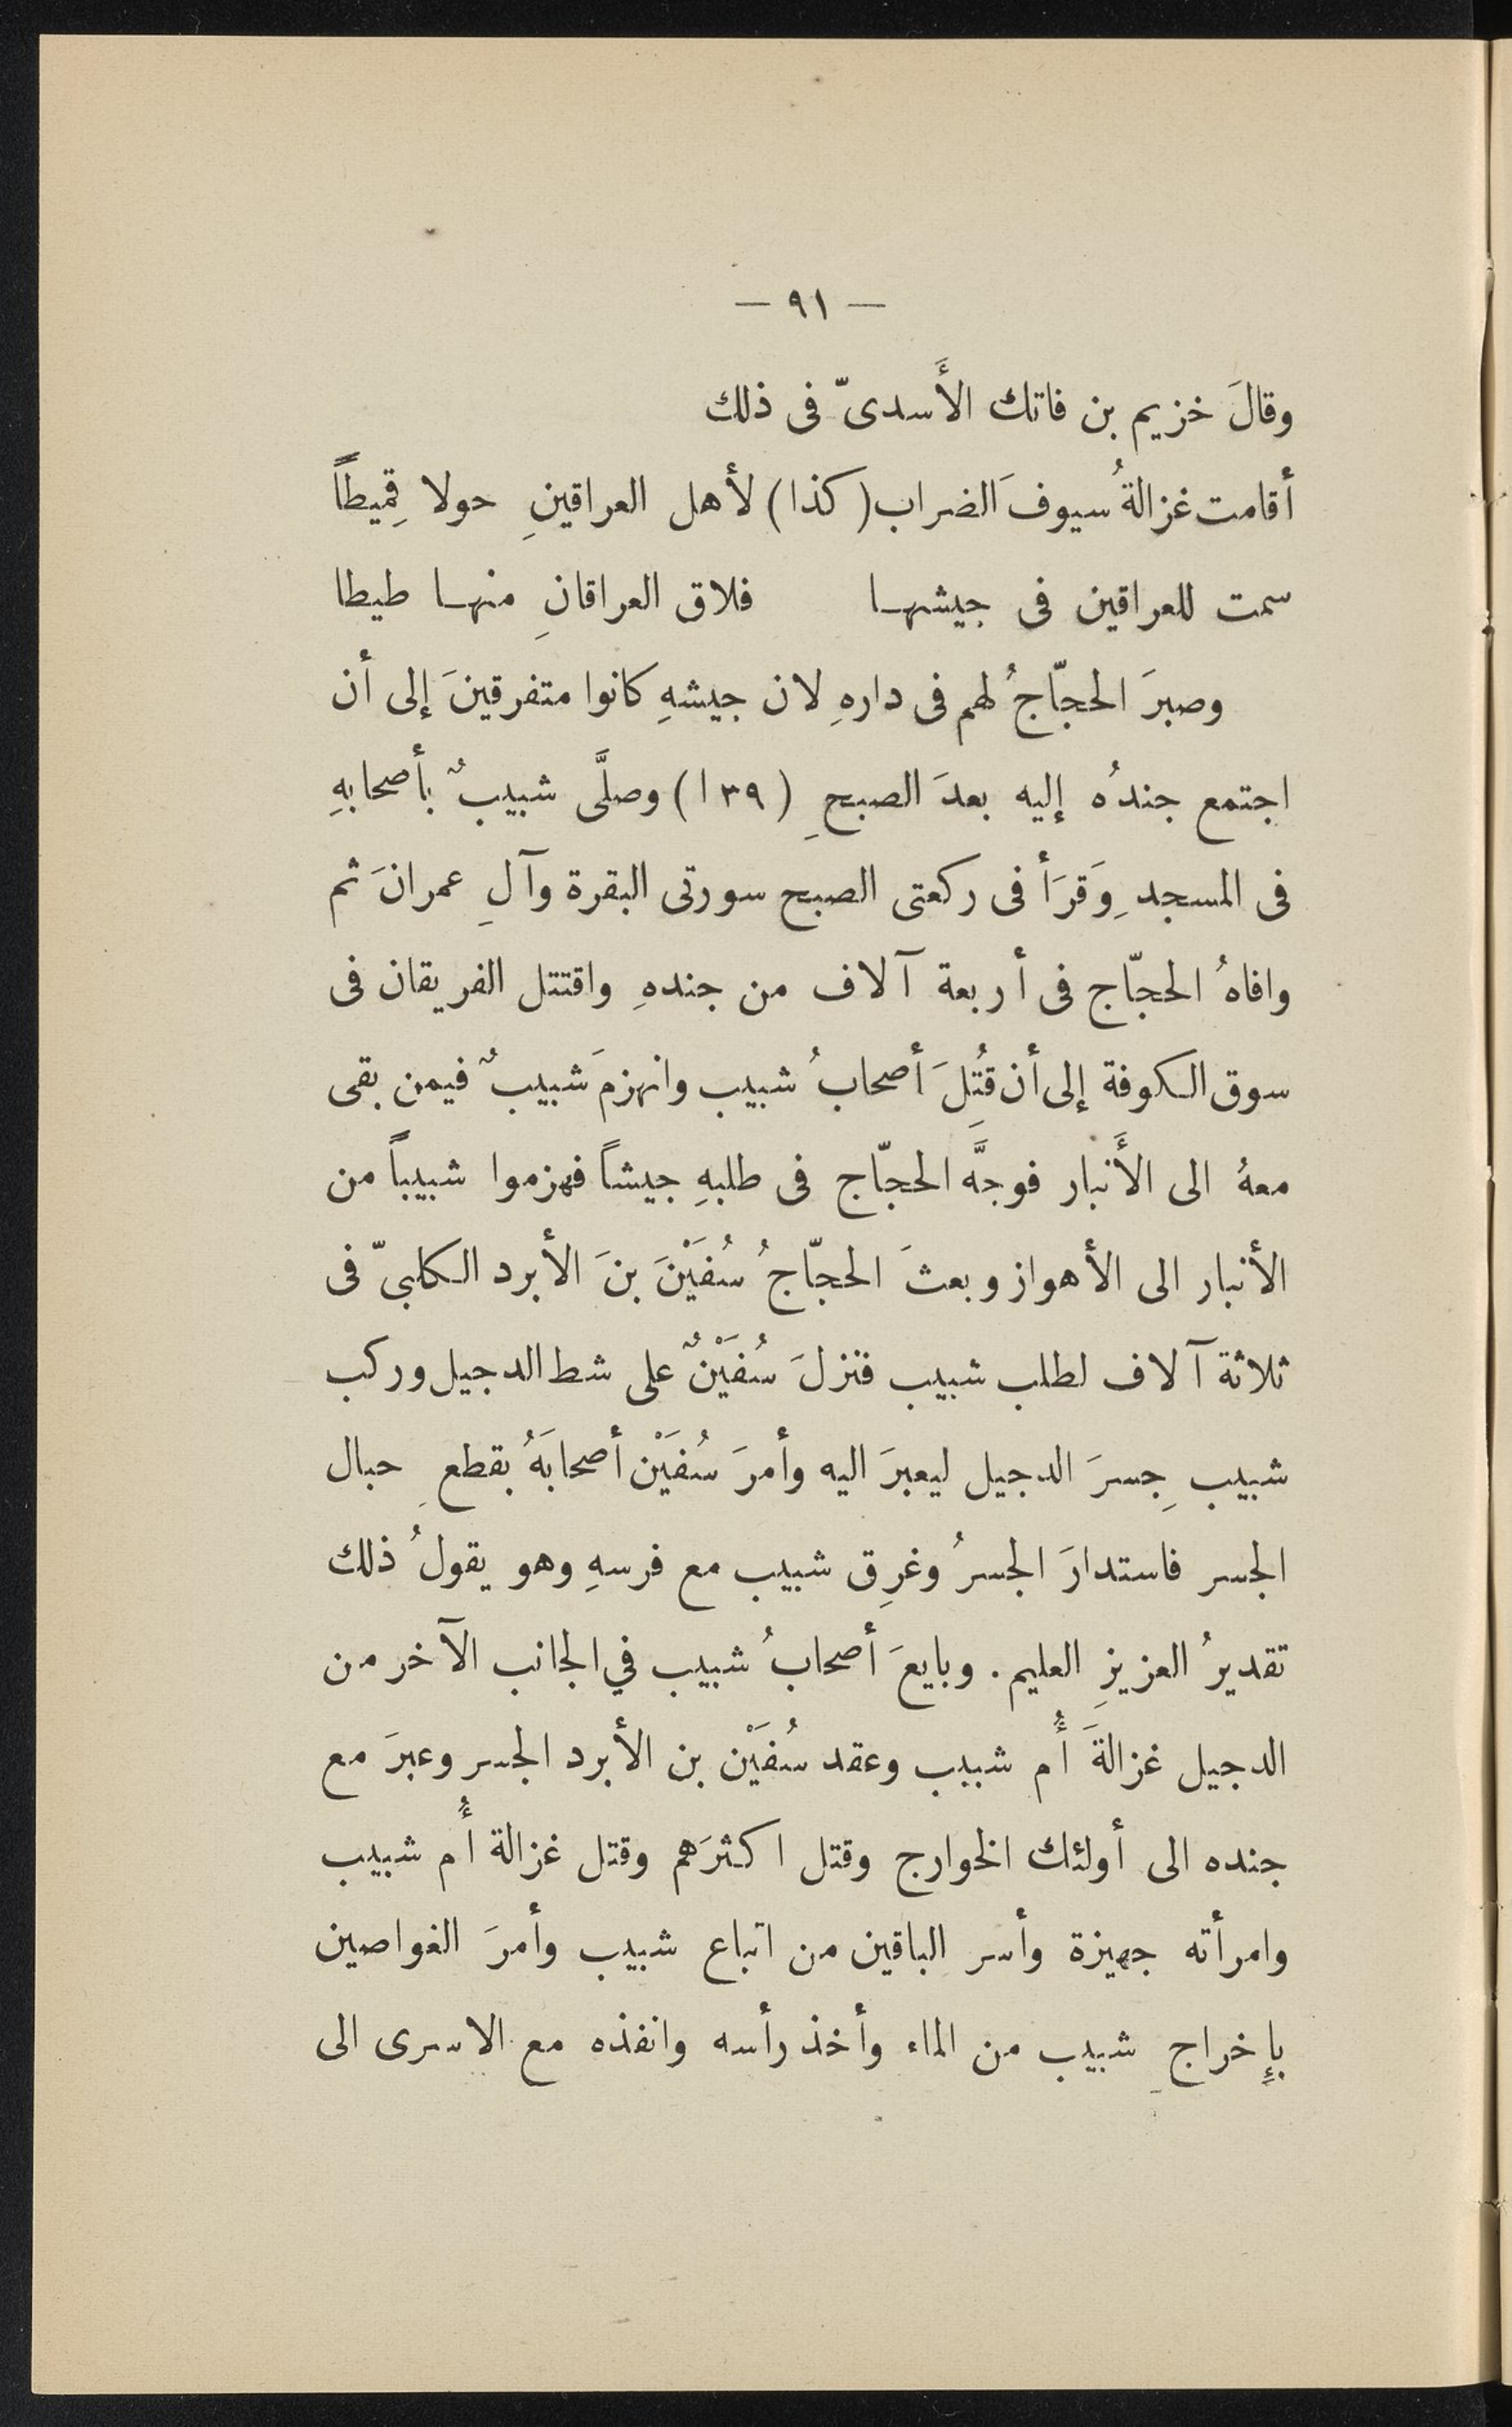 — ٩١ —
وقالَ خزيم بن فاتك الأَسدىّ فى ذلك
أقامت غزالةُ سيوفَ الضراب (كذا) لأهل العراقينِ حولا قِميطاً
سمت للعراقين فى جيشها فلاق العراقانِ منها طيطا
وصبرَ الحجّاجُ لهم فى دارهِ لان جيشهِ كانوا متفرقينَ إلى أن
اجتمع جندُه إليه بعدَ الصبحِ (١٣٩) وصلَّى شبيبٌ بأصحابهِ
فى المسجدِ وَقرَأ فى ركعتى الصبح سورتى البقرة وآلِ عمرانَ ثم
وافاهُ الحجّاج فى أربعة آلاف من جندهِ واقتتل الفريقان فى
سوق الكوفة إلى أن قُتِلَ أصحابُ شبيب وانهزمَ شبيبٌ فيمن بقى
معهُ الى الأَنبار فوجَّه الحجّاج فى طلبهِ جيشاً فهزموا شبيباً من
الأنبار الى الأهواز وبعثَ الحجّاجُ سُفَيْنَ بنَ الأبرد الكلبىّ فى
ثلاثة آلاف لطلب شبيب فنزلَ سُفَيْنٌ على شط الدجيل وركب
شبيب جِسرَ الدجيل ليعبرَ اليه وأمرَ سُفَيْن أصحابَهُ بقطعِ حبال
الجسر فاستدارَ الجسرُ وغرِق شبيب مع فرسهِ وهو يقولُ ذلك
تقديرُ العزيزِ العليم. وبايعَ أصحابُ شبيب في الجانب الآخر من
الدجيل غزالةَ أُم شبيب وعقد سُفَيْن بن الأبرد الجسر وعبرَ مع
جنده الى أولئك الخوارج وقتل اكثرَهم وقتل غزالة أُم شبيب
وامرأته جهيزة وأسر الباقين من اتباع شبيب وأمرَ الغواصين
بإِخراجِ شبيب من الماء وأخذ رأسه وانفذه مع الاسرى الى